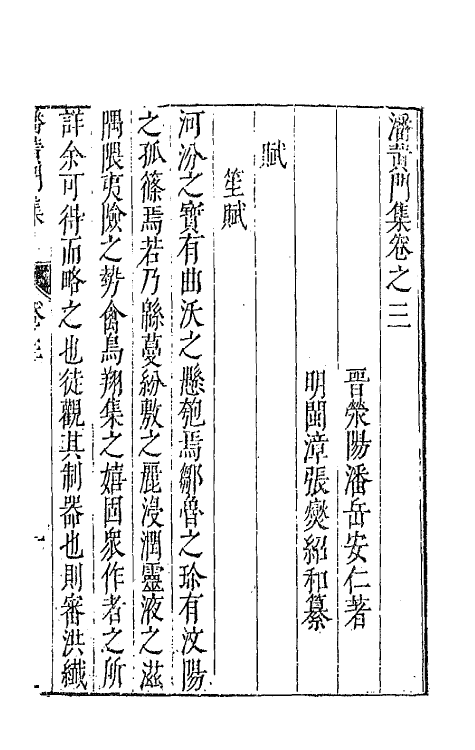 潘黃門集卷之三
晉滎陽潘岳安仁著
明閩漳張燮紹和纂
賦
笙賦
河汾之寶有曲沃之懸匏焉鄒魯之珍有汶陽
之孤篠焉若乃緜蔓紛敷之麗浸潤靈液之滋
隅隈夷險之勢禽鳥翔集之嬉固衆作者之所
詳余可得而略之也徒觀其制器也則審洪纖
潘黃門集 卷三 一